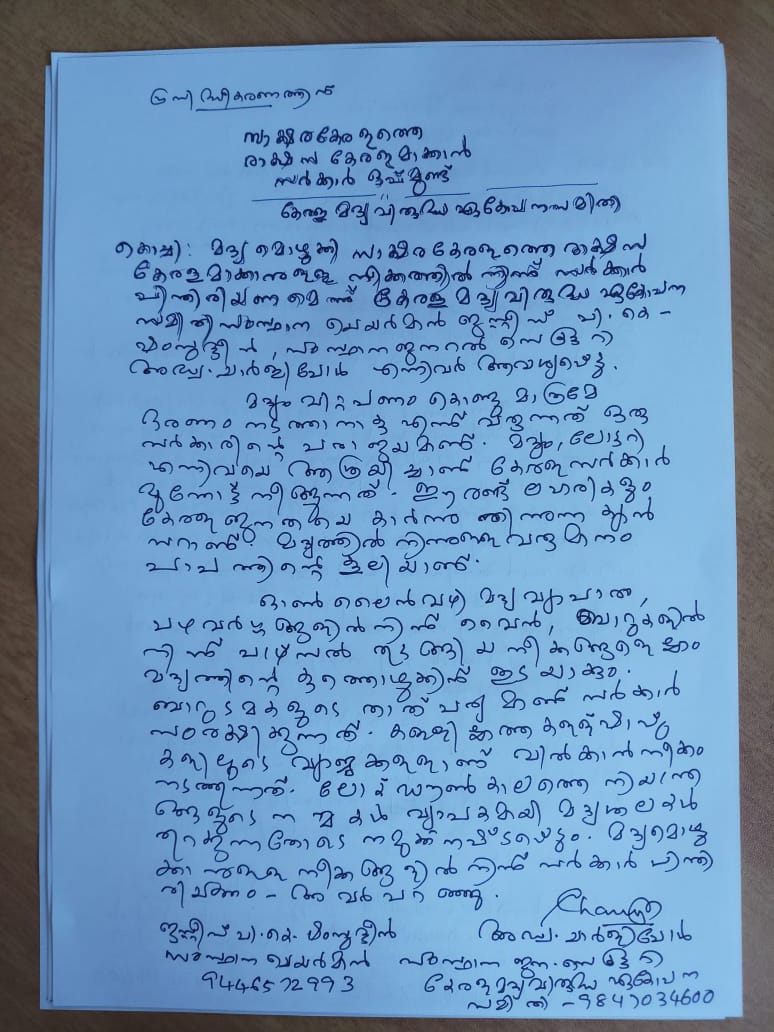 പ്രസിദ്ധീകരണത്തിന്
സാക്ഷരകേരളത്തെ
രാക്ഷസ കേരളമാക്കാൻ
സർക്കാർ
കേരള മദ്യവിരുദ്ധ ഏകോപനസമിതി
കൊച്ചി: മദ്യമൊഴുക്കി സാക്ഷരകേരളത്തെ രാക്ഷസ
കേരളമാക്കാനുള്ള നീക്കത്തിൽ നിന്ന് സർക്കാർ
പിന്തിരിയണമെന്ന് കേരള മദ്യവിരുദ്ധ ഏകോപന
സമിതി സംസ്ഥാന ചെയർമാൻ ജസ്റ്റീസ് പി. കെ-
ഷംസുദ്ദീൻ, സംസ്ഥാന ജനറൽ സെക്രട്ടറി
അഡ്വ. ചാർളിപോൾ എന്നിവർ ആവശ്യപ്പെട്ടു.
മദ്യം വിറ്റ പണം കൊണ്ടു മാത്രമേ
ഭരണം നടത്താനാകൂ എന്ന് വരുന്നത് ഒരു
സർക്കാരിന്റെ പരാജയമാണ്. മദ്യം, ലോട്ടറി
എന്നിവയെ ആശ്രയിച്ചാണ് കേരളസർക്കാർ
മുന്നോട്ട് നീങ്ങുന്നത്. ഈ രണ്ട് ലഹരികളും
കേരള ജനതയെ കാർന്നു തിന്നുന്ന ക്യാൻ
സറാണ്. മദ്യത്തിൽ നിന്നുള്ള വരുമാനം
പാപത്തിന്റെ കൂലിയാണ്.
ഓൺലൈൻ വഴി മദ്യവ്യാപാരം,
പഴവർഗ്ഗങ്ങളിൽ നിന്ന് വൈൻ, ബാറുകളിൽ
നിന്ന് പാഴ്സൽ തുടങ്ങിയ നീക്കങ്ങളെല്ലാം
മദ്യത്തിന്റെ കുത്തൊഴുക്കിന് ഇടയാക്കും.
ബാറുടമകളുടെ താത്പര്യമാണ് സർക്കാർ
സംരക്ഷിക്കുന്നത്. കള്ളില്ലാത്ത കള്ള്ഷാപ്പു
കളിലൂടെ വ്യാജകള്ളാണ് വിൽക്കാൻ നീക്കം
നടത്തുന്നത്. ലോക്ഡൗൺ കാലത്തെ നിയന്ത്ര
ങ്ങളുടെ നന്മകൾ വ്യാപകമായി മദ്യശാലകൾ
തുറക്കുന്നതോടെ നമുക്ക് നഷ്ടപ്പെടും. മദ്യമൊഴു
ക്കാനുള്ള നീക്കങ്ങളിൽ നിന്ന് സർക്കാർ പിന്തി
രിയണം - അവർ പറഞ്ഞു.
ജസ്റ്റീസ് പി. കെ. ഷംസുദ്ദീൻ അഡ്വ. ചാർളിപോൾ
സംസ്ഥാന ചെയർമാൻ സംസ്ഥാന ജന. സെക്രട്ടറി
9446572993 കേരള മദ്യവിരുദ്ധ ഏകോപന
സമിതി - 9847034600